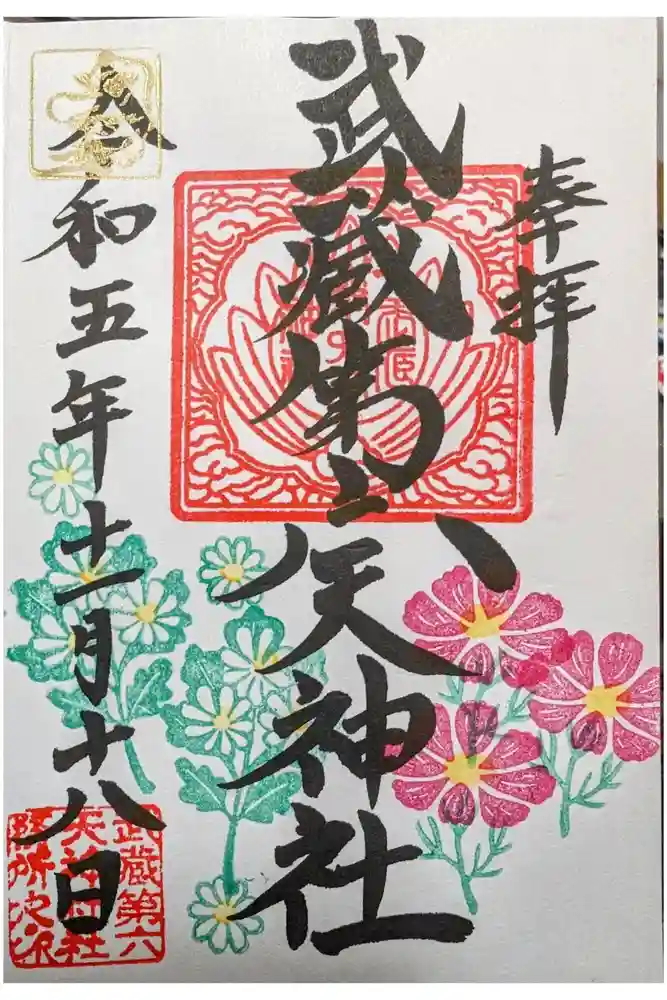 奉拝
武蔵第六天神社
令和五年十一月十八日
武蔵第六
天神社社
務所之印